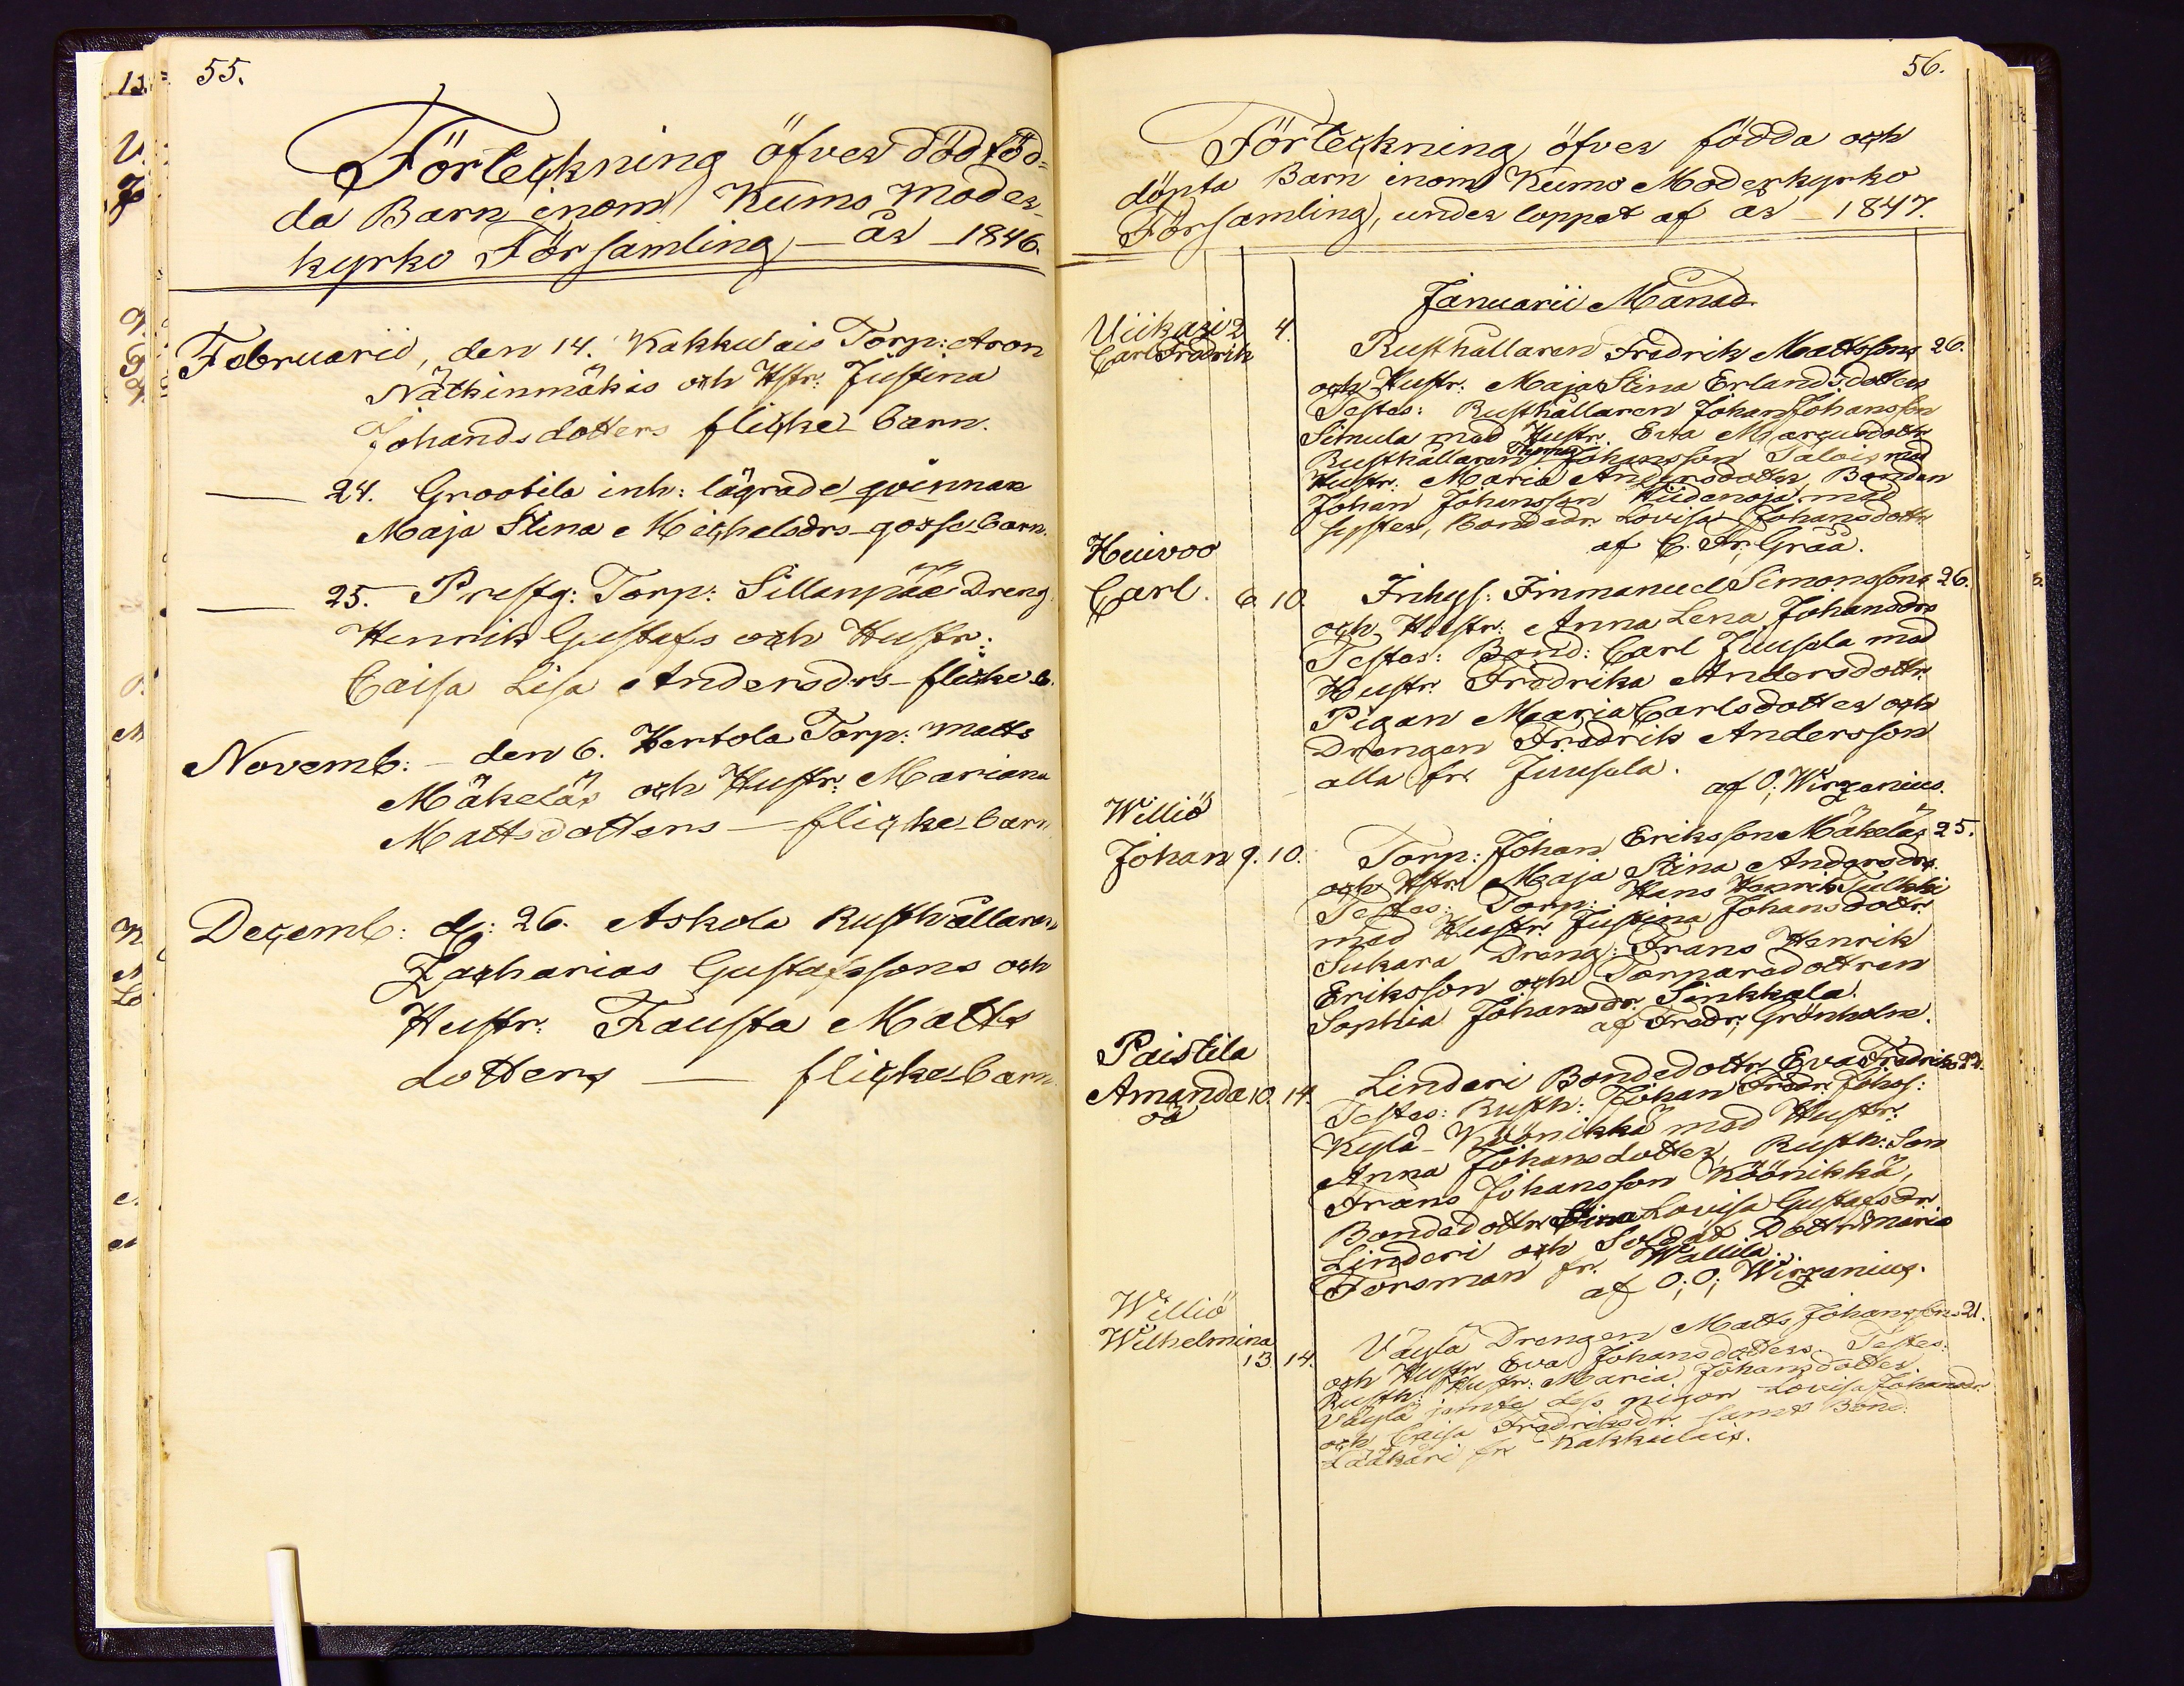 55.
Förteckning öfver dödföd=
da Barn inom Kumo Moder-
kyrko Församling, – år – 1846.
Februarii, den 14. Kakkulais Torp: Aron
Nätkinmäkis och Hstr: Justina
Johandsdotters flicke-barn.
— 24. Grootila inh: lägrade qvinnan
Maja Stina Michelsdrs – gosse-barn.
— 25. Prestg: Torp: Sillanpää Dreng
Henrik Gustafs och Hustr:
Caisa Lisa Andersdrs – flicke-b.
Novemb: – den 6. Hertola Torp: Matts
Mäkeläs och Hustr: Mariana
Mattsdotters — flicke-barn
Decemb: d: 26. Askola Rusthållaren
Zacharias Gustafssons och
Hustr: Fausta Matts
dotters — flicke-barn.
56.
Förteckning öfver födda och
döpta Barn inom Kumo Moderkyrko
Församling, under loppet af år – 1847.
Januarii Månad
Viikari 2 4. Rusthållaren Fredrik Mattssons 26.
Carl Fredrik
och Hustr: Maja Stina Erlandsdotters
Testes: Rusthållaren Johan Johansson
Simula med Hustr: Eva Marcusdottr
Rusthållaren Thomas Johansson Talois med
Hustr: Maria Andersdotter, Bonden
Johan Johansson Hiidenoja med
syster, Bondedr Lovisa Johansdottr
af C. Fr: Gråå.
Huivoo
Carl. 6 10. Inhys: Immanuel Simonssons 26.
och Hustr: Anna Lena Johansdrs
Testes: Bond: Carl Juusela med
Hustr: Fredrika Andersdottr.
Pigan Maria Carlsdotter och
Drengen Fredrik Andersson
alla fr: Juusela.
af O; Wirzenius.
Williö
Johan 9. 10. Torp: Johan Eriksson Mäkeläs 25.
och Hstr: Maja Stina Andersdrs.
Testes: Torp: Hans Henrik Tulkki
med Hustr: Justina Johansdottr.
Sukara Dreng: Frans Henrik
Eriksson och Torparedottren
Sophia Johansdr. Sinkkala.
af Fredr: Grönholm.
Paistila
Amanda 10. 14. Linderi Bondedottr. Eva Fredriks 22.
oä
Testes: Rusth: Johan Fredr: Johos:
Kylä-Köönikkä med Hustr:
Anna Johansdotter, Rusth: Son
Frans Johansson Köönikkä,
Bondedottr Lovisa Gustafsdr
Linderi och Soldat Dottr Maria
Forsman fr: Wallila.
af O; O; Wirzenius.
Williö
Wilhelmina
13. 14. Väylä Drengen Matts Johanssons 21.
och Hustr Eva Johansdotters. Testes:
Rusth: Hustr: Maria Johansdotter
Väylä jemte dess pigor Lovisa Johansdr
och Caisa Fredriksdr samt Bond:
Lääkäri fr Kakkulais.